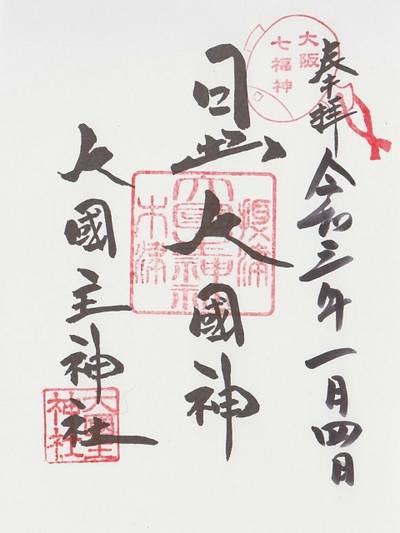 大阪
七福神
奉拝 令和三年一月四日
日出大國神
木津
大國主神社
大國主
神社